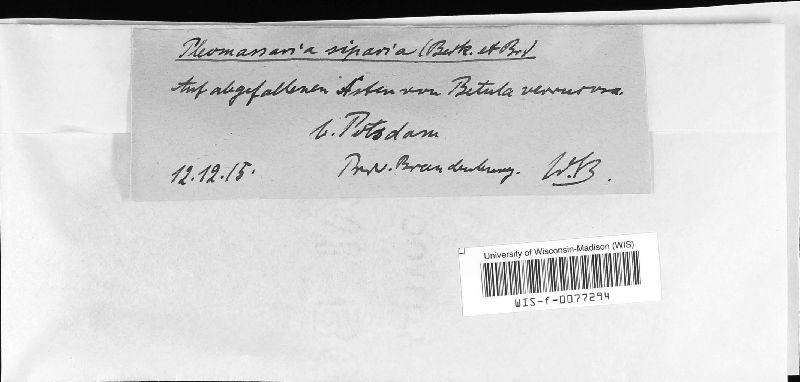 Pleomassaria siparia (Berk. et Br.)
Auf abgefallenen Ästen von Betula verrucosa.
b. Potsdam
12.12.15. Prov. Brandenburg. W.B.
University of Wisconsin-Madison (WIS)
WIS-f-0077294